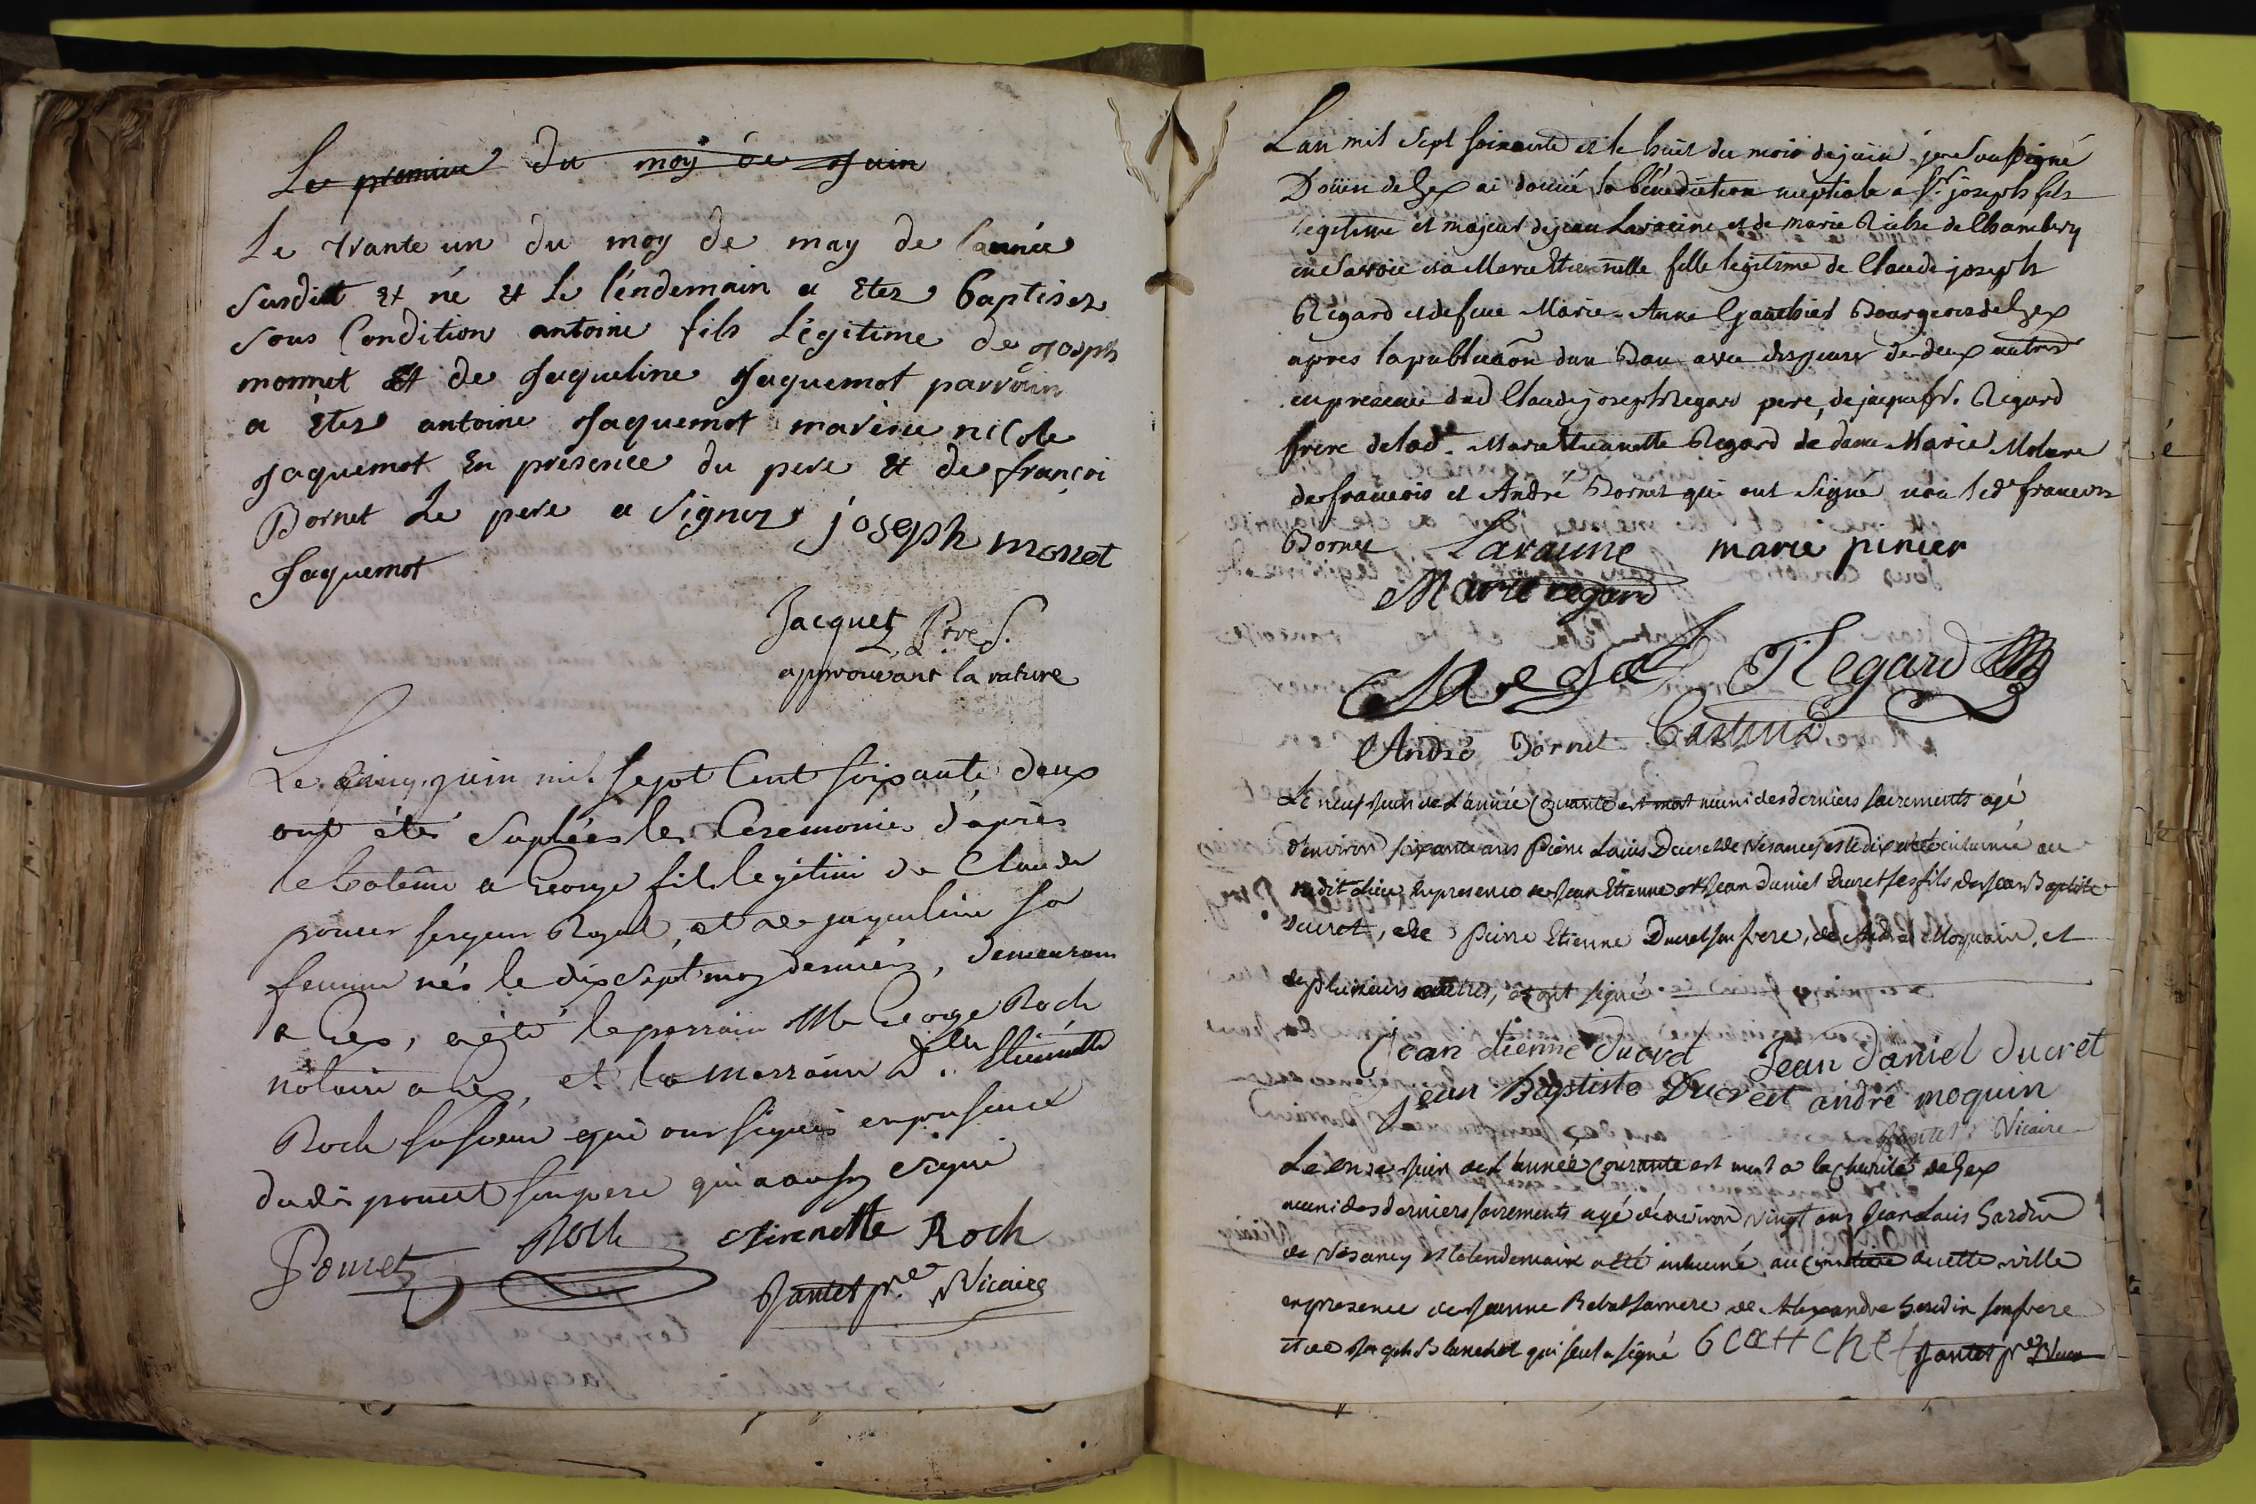 Le premier du moy de Juin
Le trante un du moy de may de lannée
susdit et né et le l'éndemain a étez baptisez
sous Condition antoine fils Légitime de Joseph
monnet Et de Jaqueline Jaquemot parrain
a êtez antoine Jaquemot mareine nicole
Jaquemot En présence du pere et de françoi
Bornet Le pere a Signez joseph monet
Jaquemot
Jacquet Ptre S.
approuvant la rature
Le cinq juin mil sept Cent soixante deux
ont étés Suplées les Ceremonies d'après
le batême a George fils legitime de Claude
poncet sergeun Royal, et de jaqueline sa
femme nés le dix sept may dernier, demeurans
a Gex, a été le parrain Me George Roch
notaire a Gex, et la marraine Dlle Etiennette
Roch sa soeur qui ont signés en presence
dudit poncet son pere qui a aussy signé
Poncet Roch Etienette Roch
Jantet ptre Vicaire
Lan mil Sept soixante et le huit du mois de juin je Soussigné
Doïen de Gex ai donné la bénédiction nuptiale a Sr joseph fils
légitime et majeur de jean Laracine et de marie Riche de Chambery
en Savoie et a Marie Etiennette fille légitime de Claude joseph
Régard et de feue Marie-Anne Gauthier Bourgeois de Gex
apres la publicaôn dun Ban avec dispense de deux autres
en presence dud Claude joseph Regard pere, de jaque fr. Regard
frere de lad. Marie Etiennette Regard de dame Marie
de francois et André Bornet qui ont Signé non led francois
Bornet Laracine marie pinier
Marie regard
Regard
André Bornet Castin
Le neuf Juin de L'année Courante est mort muni des derniers sacrements agé
d'environ soixante ans Pierre Louis Ducret de Vésancy et le dix a été inhumé au
susdit Lieu En presence de Jean Etienne et Jean Daniel Ducret ses fils de Jean Baptiste
Ducret, de Pierre Etienne Ducret son frere, de André Moquain, et
de plusieurs autres, et ont signé
Jean etienne ducret Jean daniel ducret
jean Baptiste Ducret andré moquin
Jantet Vicaire
Le onze Juin de L'année Courante est mort a la charité de Gex
muni des derniers sacrements agé d'environ vingt ans Jean Louis Hardin
de Vésancy et le lendemain a été inhumé au Cimetiere de cette ville
en presence de Jeanne Rebat sa mere de Alexandre Hardin son frere
et de Joseph Blanchet qui seul a signé Jantet ptre Vicaire